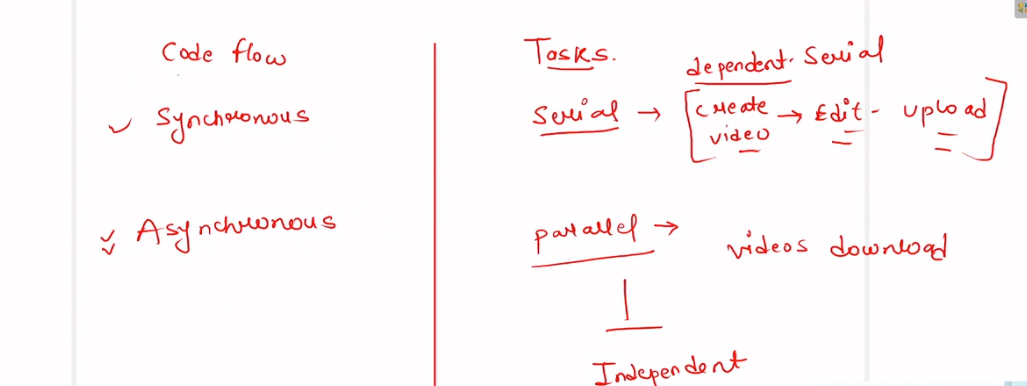 Code flow
Synchronous
Asynchronous
Tasks.
dependent. Serial
Serial → [create → Edit - upload]
video
parallel → videos download
Independent